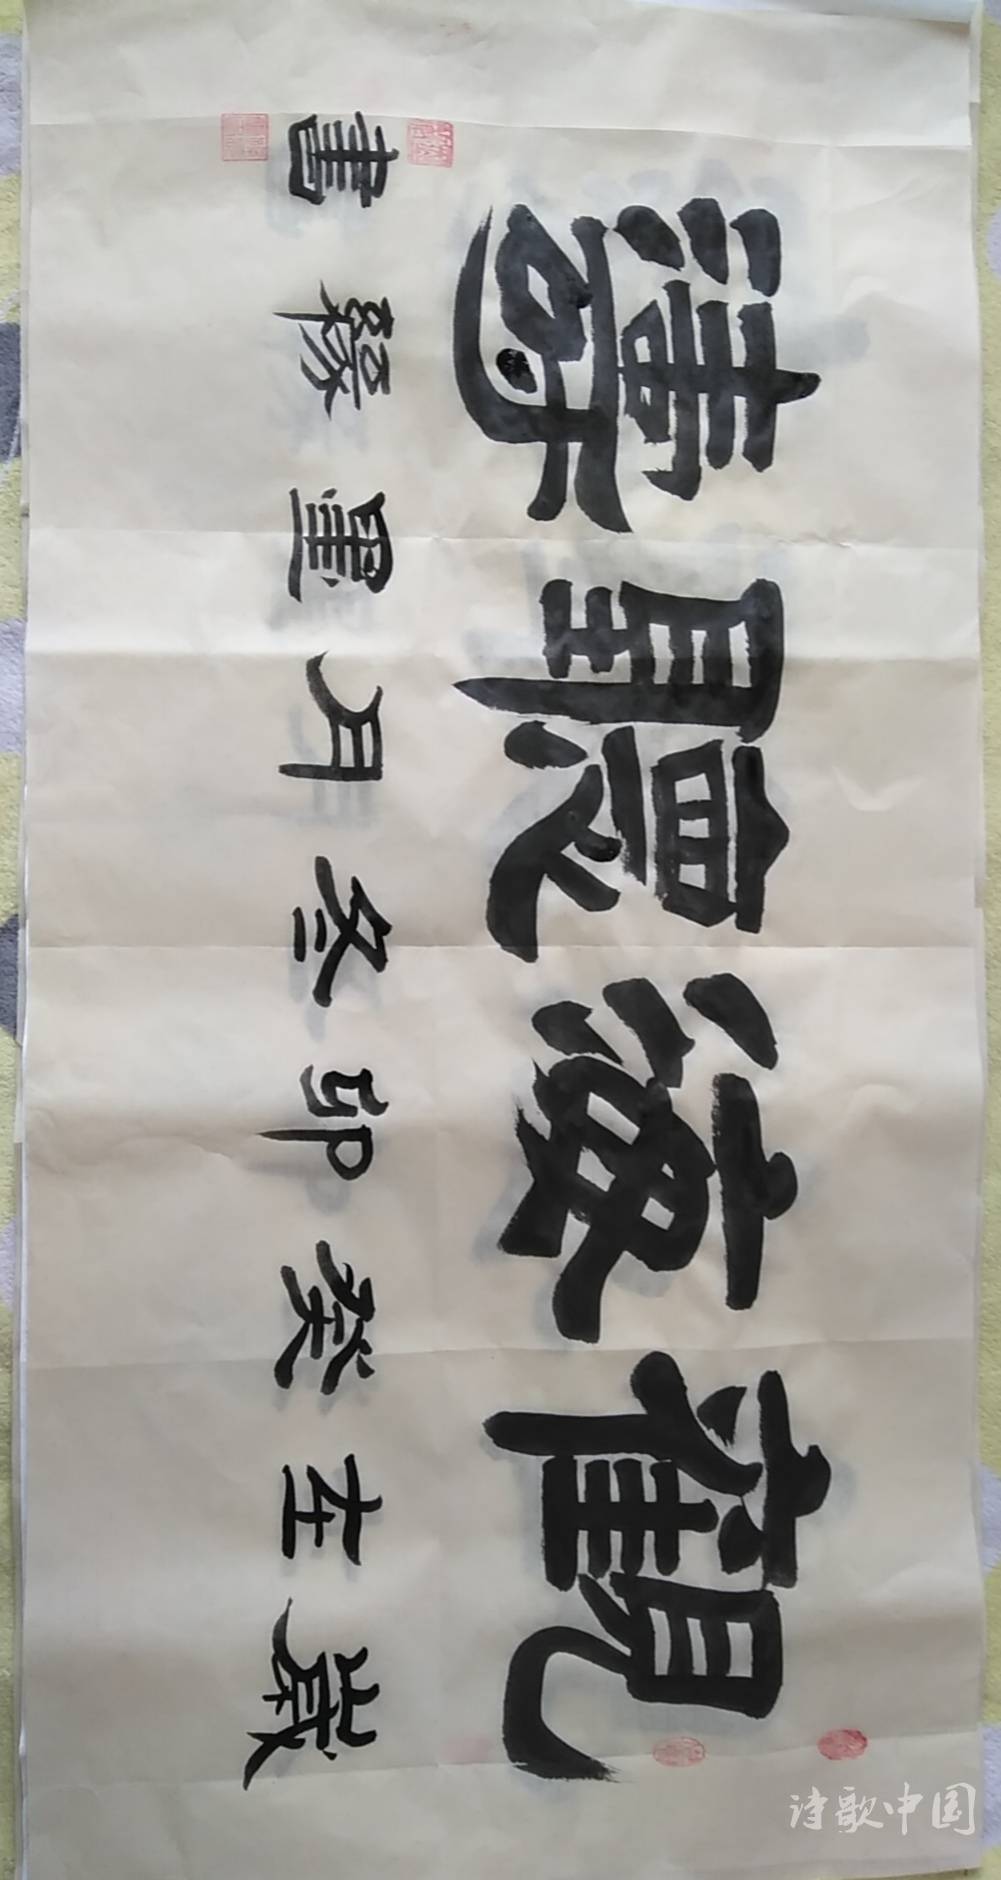 觀海聽濤
歲在癸卯冬月墨書
诗歌中国